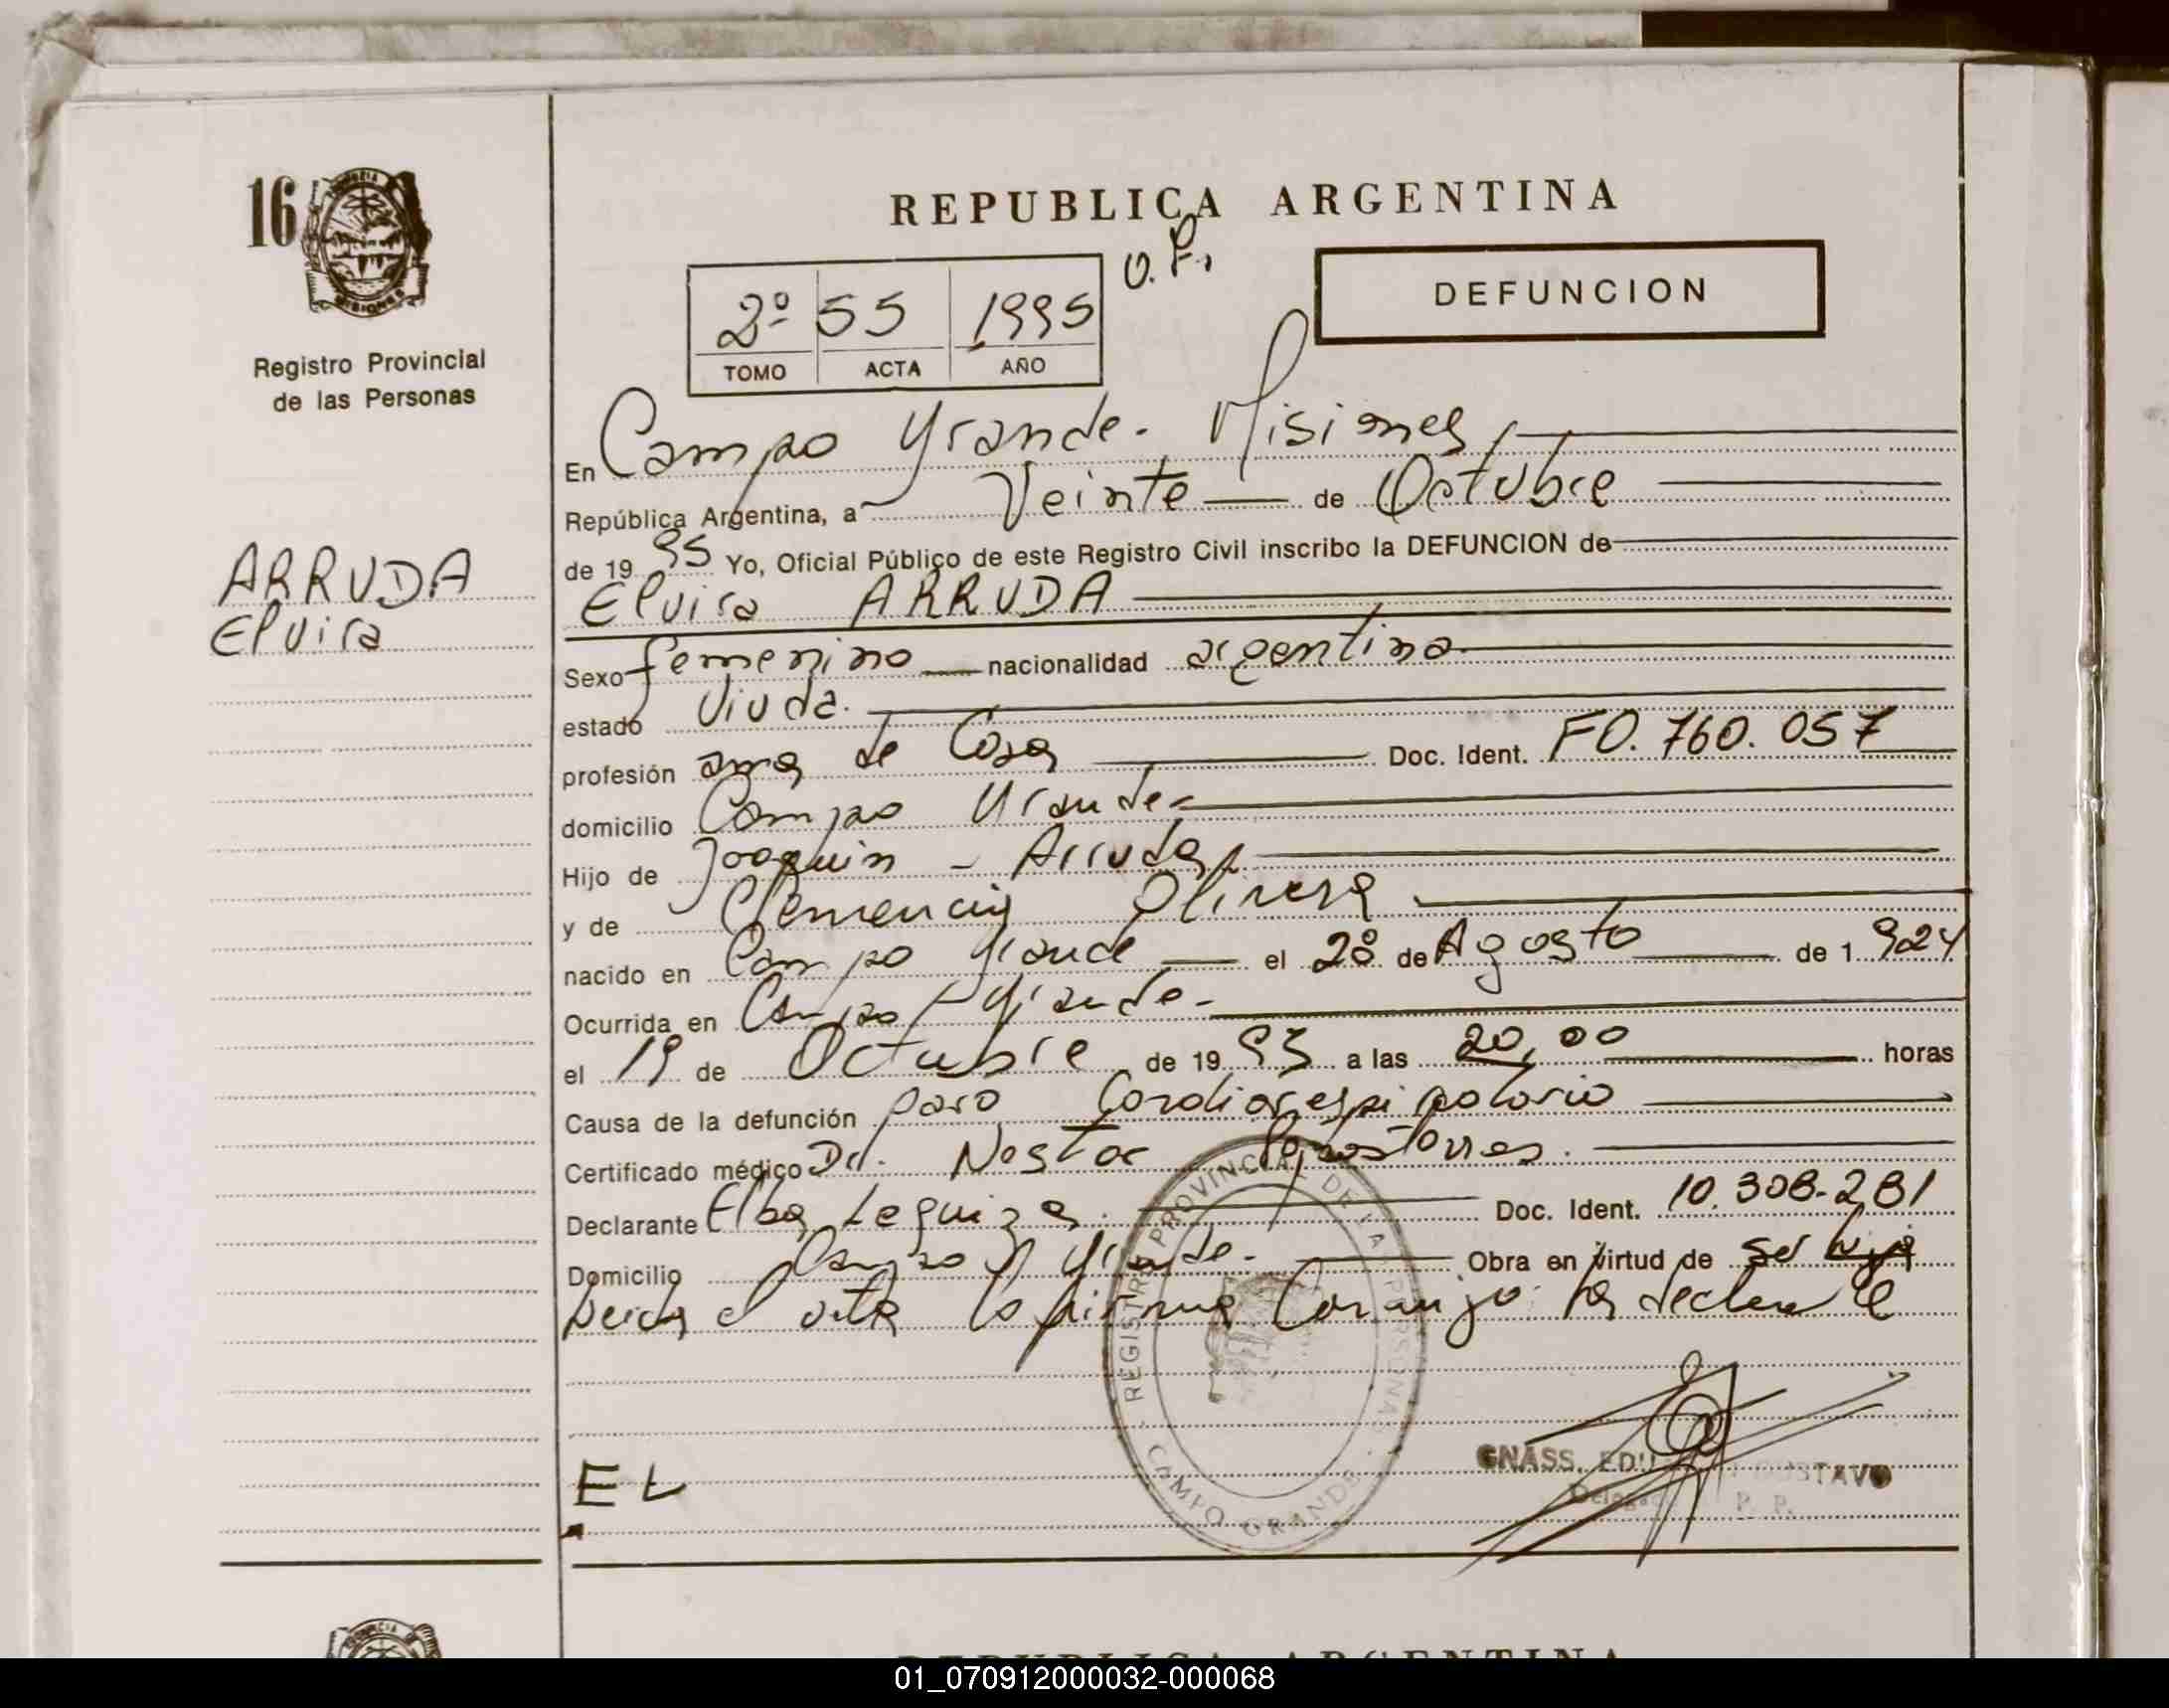 16
Registro Provincial
de las Personas
ARRUDA
Elvira
REPUBLICA ARGENTINA
O.P.
2º 55 1995
TOMO ACTA AÑO
DEFUNCION
En Campo Grande. Misiones
República Argentina, a Veinte de Octubre
de 19 95 Yo, Oficial Público de este Registro Civil inscribo la DEFUNCION de
Elvira ARRUDA
Sexo femenino nacionalidad argentina
estado Viuda.
profesión ama de Casa Doc. Ident. F0.760.057
domicilio Campo Grande
Hijo de Joaquin - Arruda
y de Clemencia Olivera
nacido en Campo Grande el 28 de Agosto de 1 924
Ocurrida en Campo Grande-
el 19 de Octubre de 19 95 a las 20,00 horas
Causa de la defunción paro Cardiorespiratorio
Certificado médico Dr. Nestor
Declarante Elba Leguiza Doc. Ident. 10.308.281
Domicilio Campo Grande. Obra en virtud de ser hija
Leida el acta la firma Conmigo la declarante
REGISTRO PROVINCIAL DE LA PERSONAS
CAMPO GRANDE
GNASS, EDU GUSTAVO
Delegado R. P.
E L
REPUBLICA ARGENTINA
01_070912000032-000068